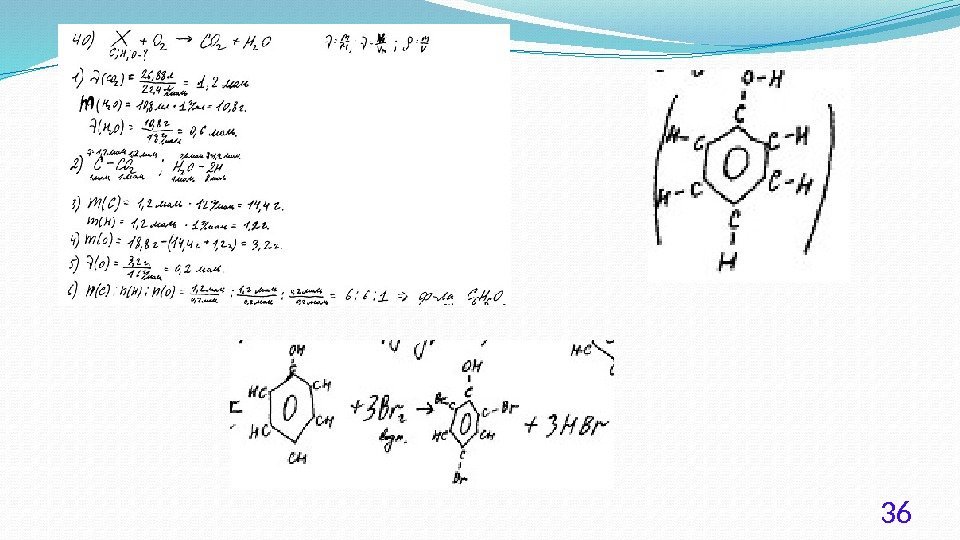 40) X + O₂ → CO₂ + H₂O
C; H; O-?
1) ν(CO₂) = 26,88л / 22,4 л/моль = 1,2 моль
m(H₂O) = 10,8 мл · 1 г/мл = 10,8 г.
ν(H₂O) = 10,8 г / 18 г/моль = 0,6 моль.
2) C – CO₂ ; H₂O – 2H
3) m(C) = 1,2 моль · 12 г/моль = 14,4 г.
m(H) = 1,2 моль · 1 г/моль = 1,2 г.
4) m(O) = 18,8 г – (14,4 г + 1,2 г) = 3,2 г.
5) ν(O) = 3,2 г / 16 г/моль = 0,2 моль.
6) n(C) : n(H) : n(O) = 1,2 моль / 0,2 моль : 1,2 моль / 0,2 моль : 0,2 моль / 0,2 моль = 6 : 6 : 1 ⇒ ф-ла C₆H₆O.
O–H
C
H–C C–H
H–C C–H
C
H
HC
OH
C
HC CH
HC CH
CH
+ 3Br₂ →
водн.
OH
C
Br–C C–Br
HC CH
C
Br
+ 3HBr
36